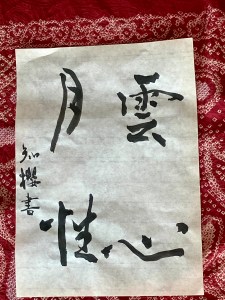 雲心
月性
知櫻書